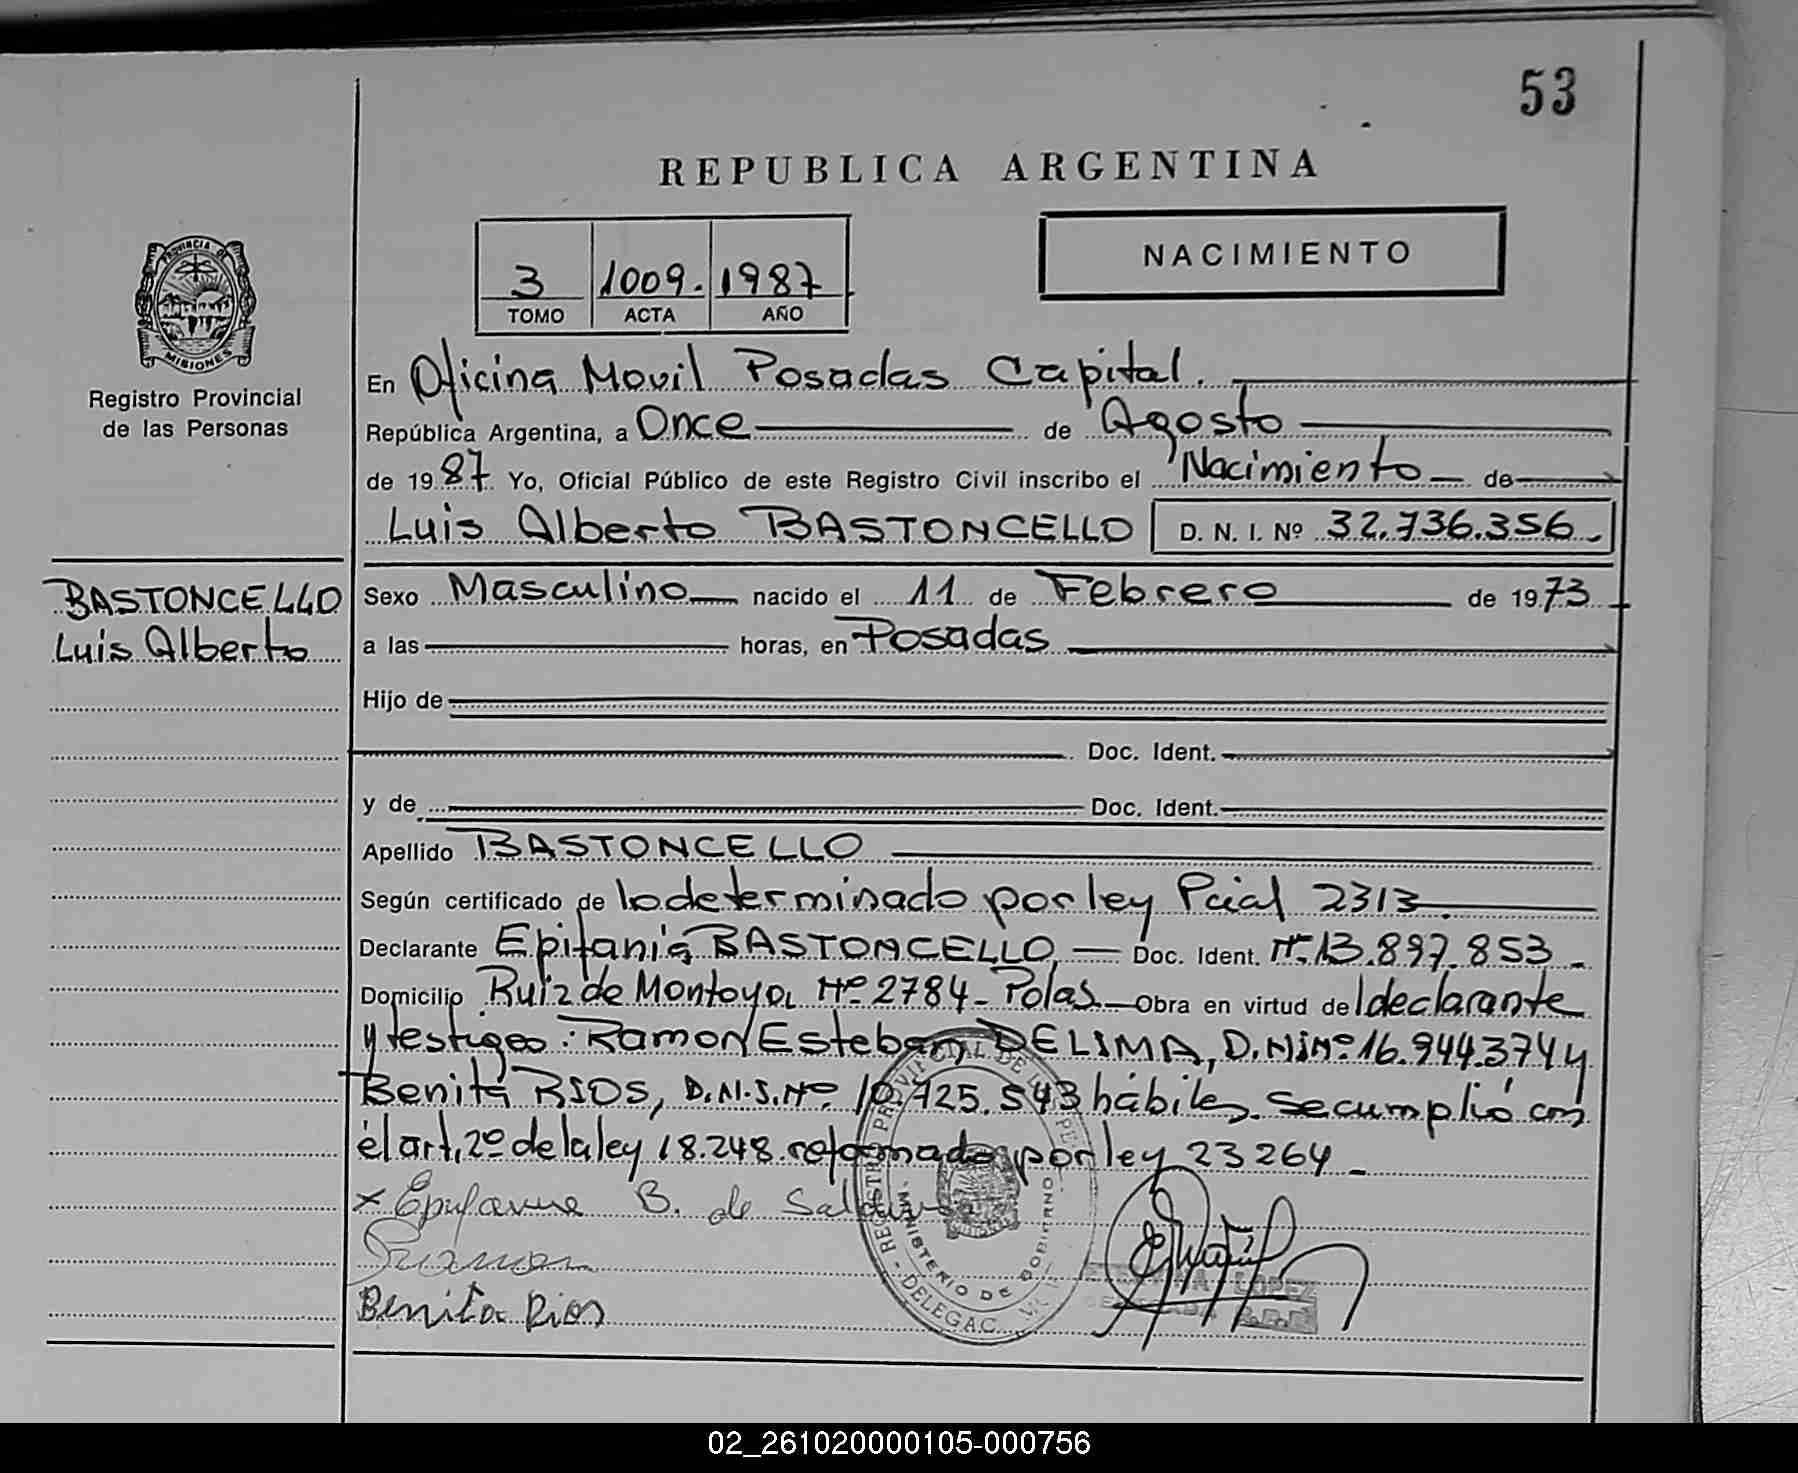 53
REPUBLICA ARGENTINA
3 1009. 1987
TOMO ACTA AÑO
NACIMIENTO
PROVINCIA DE
MISIONES
Registro Provincial
de las Personas
En Oficina Movil Posadas Capital.
República Argentina, a Once de Agosto
de 1987 Yo, Oficial Público de este Registro Civil inscribo el Nacimiento de
Luis Alberto BASTONCELLO D. N. I. Nº 32.736.356.
BASTONCELLO
Luis Alberto
Sexo Masculino nacido el 11 de Febrero de 1973
a las horas, en Posadas
Hijo de
Doc. Ident.
y de Doc. Ident.
Apellido BASTONCELLO
Según certificado de lo determinado por ley Pcial 2313.
Declarante Epifania BASTONCELLO Doc. Ident. Nº 13.897.853
Domicilio Ruiz de Montoya Nº 2784 - Pdas Obra en virtud del declarante
y testigos: Ramon Esteban DELIMA, D.N.I Nº 16.944.374 y
Benita RIOS, D.N.I. Nº 10.725.543 hábiles. Se cumplió con
el art. 2º de la ley 18.248 reformado por ley 23264
x Epifania B. de
Ramon
Benita Rios
REGISTRO PROVINCIAL DE LAS PE
MINISTERIO DE GOBIERNO
DELEGAC.
LOPEZ
02_261020000105-000756